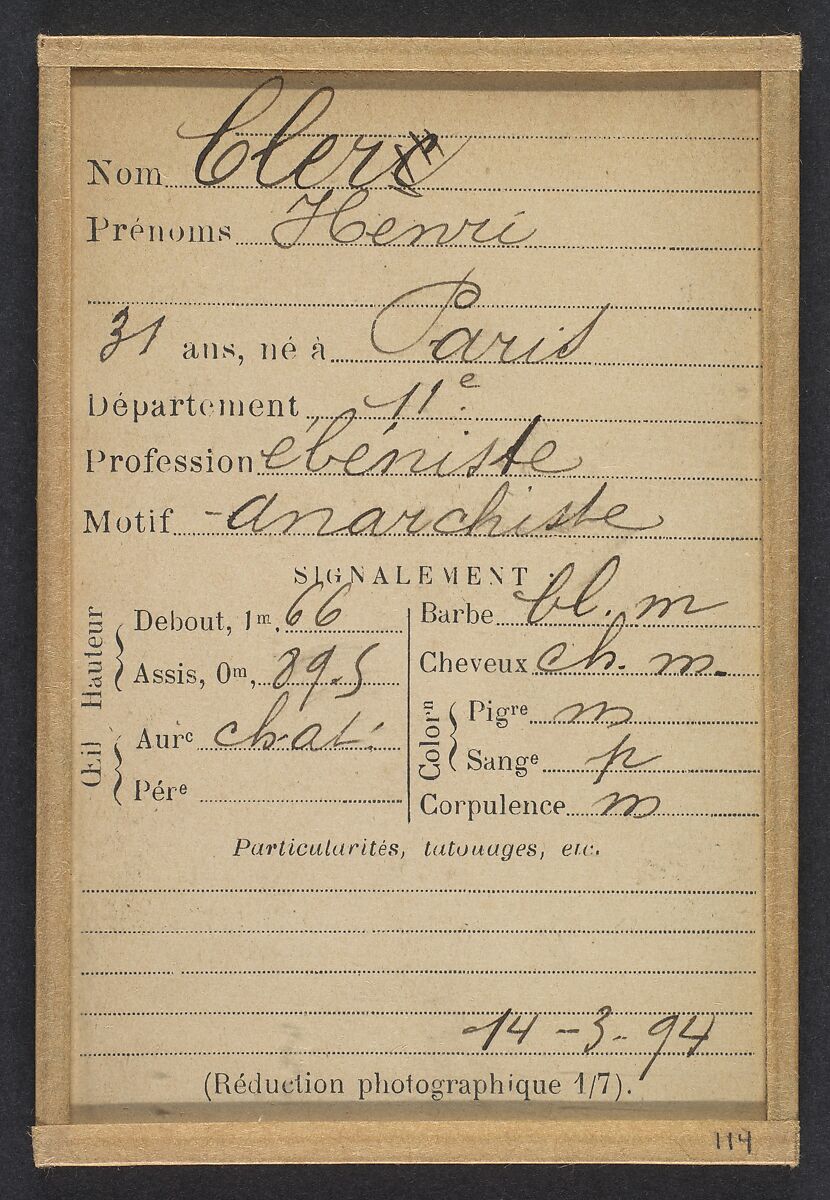 Nom Cler
Prénoms Henri
31 ans, né à Paris
Département 11e
Profession ébéniste
Motif - anarchiste
SIGNALEMENT.
Hauteur
Debout, 1m, 66
Assis, 0m, 89.5
Œil
Aure chat.
Pére
Barbe bl. m
Cheveux ch. m.
Colorn
Pigre m
Sange p
Corpulence m
Particularités, tatouages, etc.
14-3-94
(Réduction photographique 1/7).
114